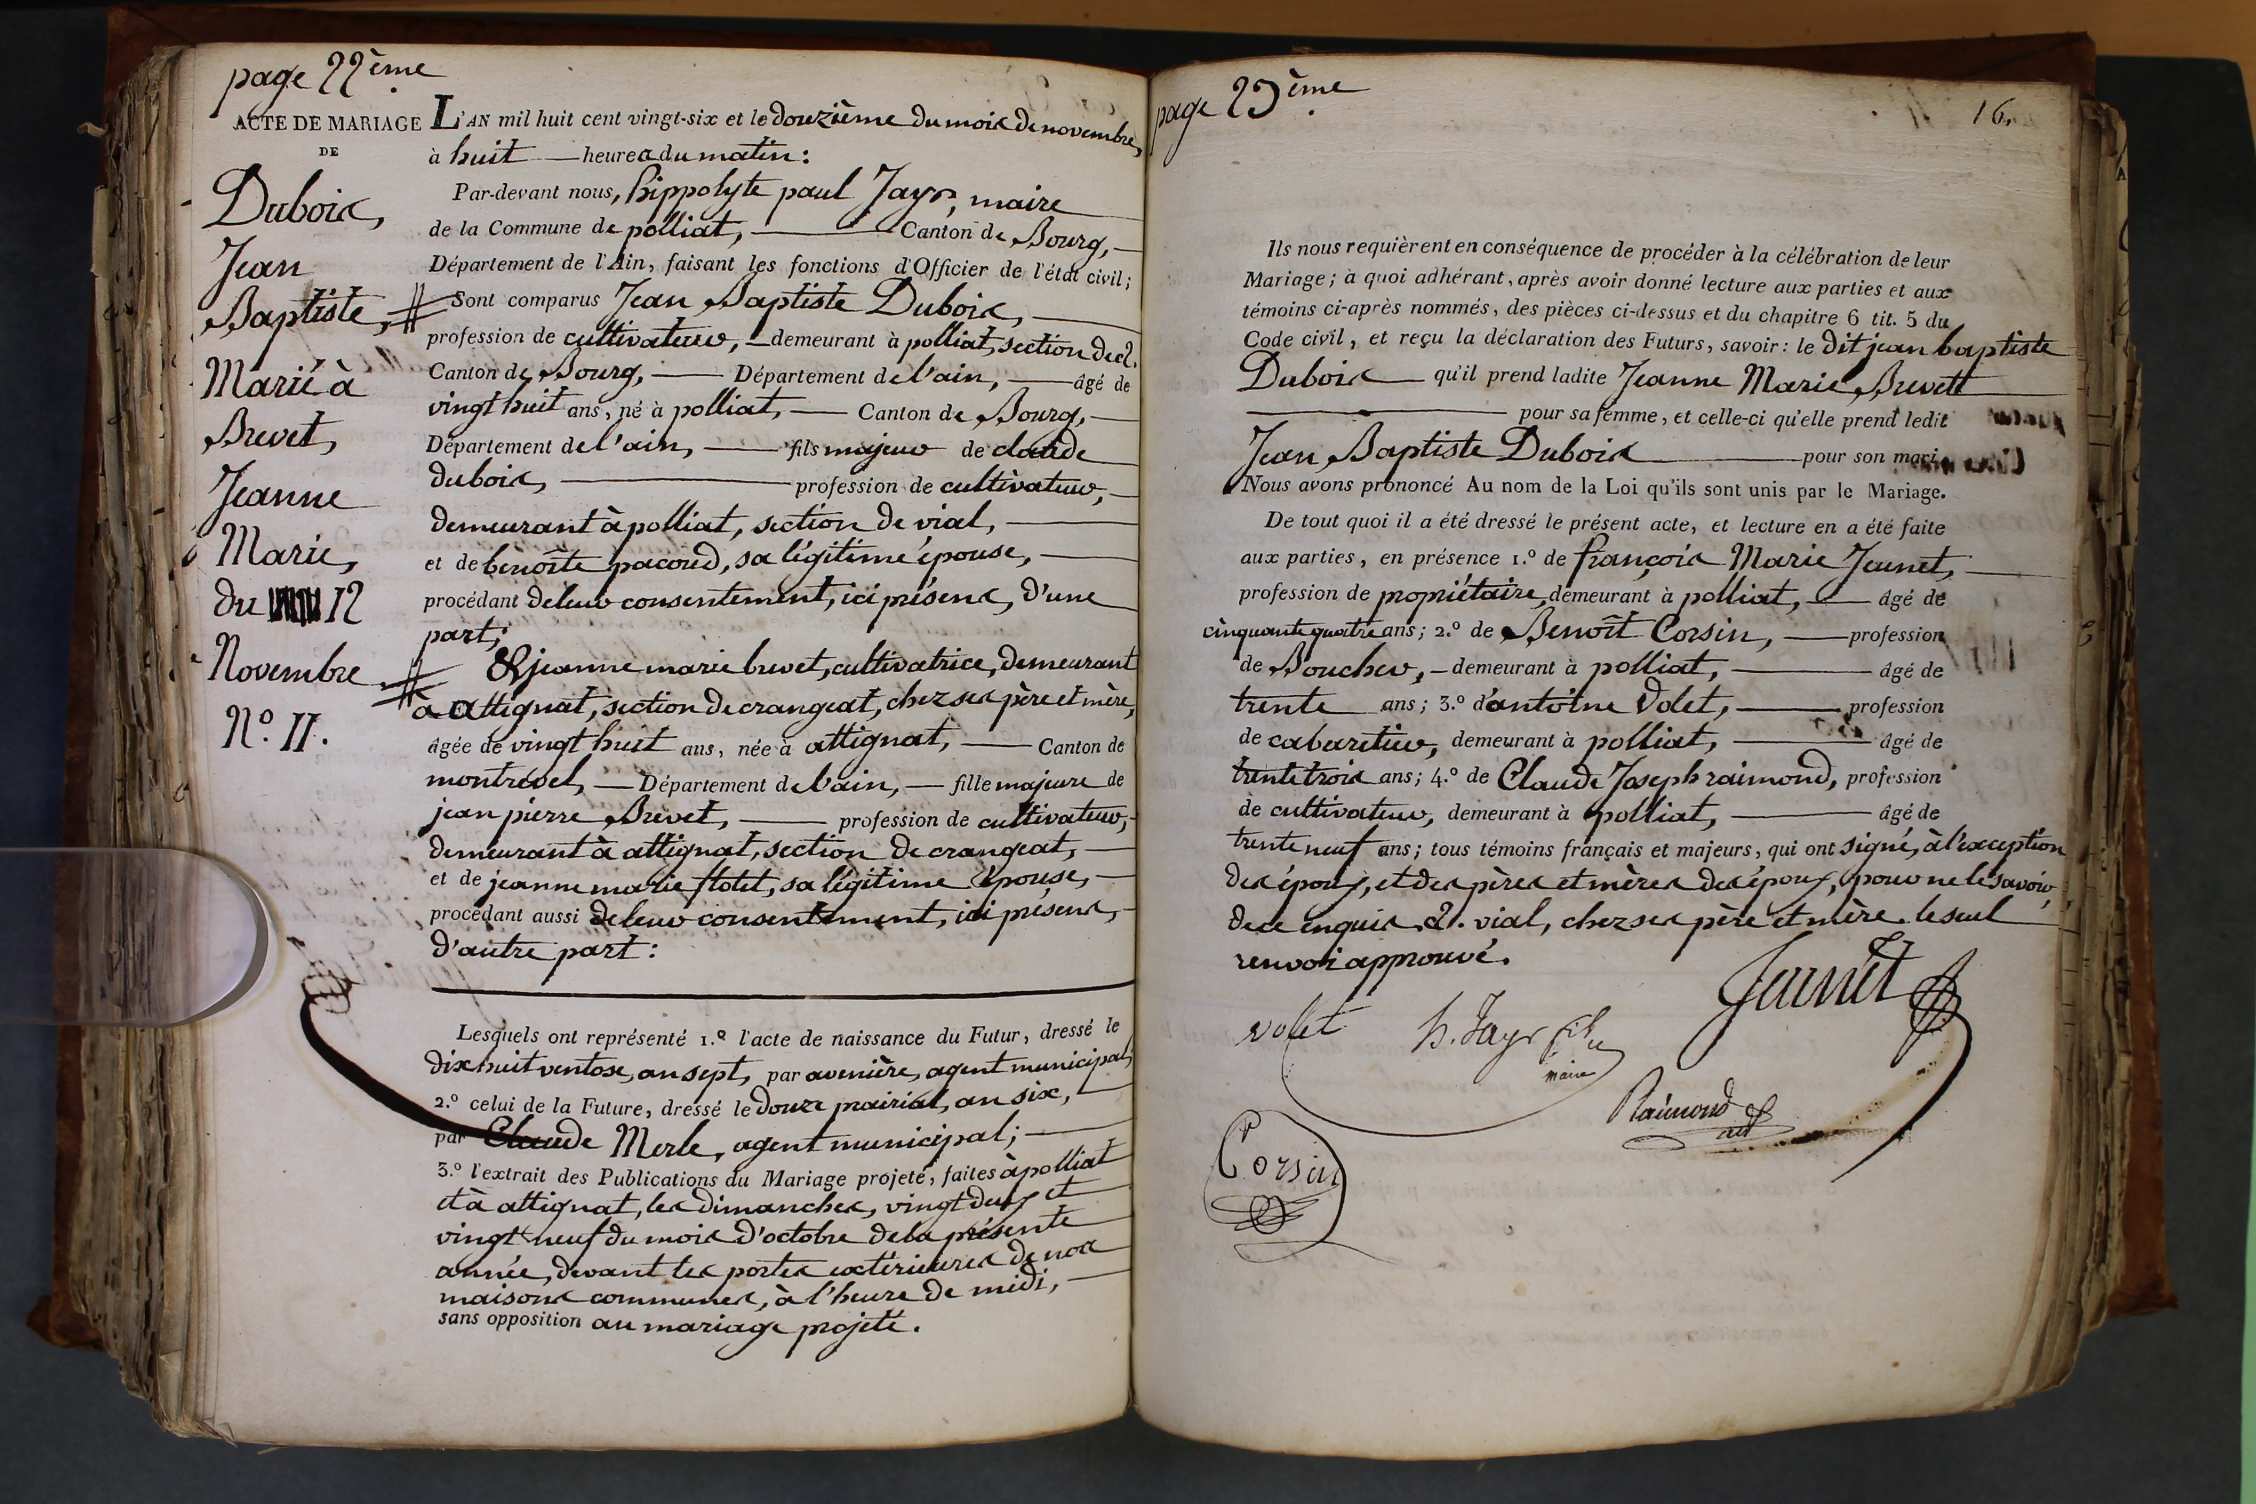 page 22ème
ACTE DE MARIAGE
DE
Dubois,
Jean
Baptiste,
Marié à
Brevet,
Jeanne
Marie,
du 12
Novembre
N.º 11.
L'AN mil huit cent vingt-six et le douzième du mois de novembre,
à huit heures du matin:
Par-devant nous, hippolyte paul Jayr, maire
de la Commune de polliat, Canton de Bourg,
Département de l'Ain, faisant les fonctions d'Officier de l'état civil;
Sont comparus Jean Baptiste Dubois,
profession de cultivateur, demeurant à polliat, section de
Canton de Bourg, Département de l'ain, âgé de
vingt huit ans, né à polliat, Canton de Bourg,
Département de l'ain, fils majeur de claude
dubois, profession de cultivateur,
demeurant à polliat, section de vial,
et de benoîte pacoud, sa légitime épouse,
procédant de leur consentement, ici présens, d'une
part;
& jeanne marie brevet, cultivatrice, demeurant
à attignat, section de crangeat, chez ses père et mère,
âgée de vingt huit ans, née à attignat, Canton de
montrevel, Département de l'ain, fille majeure de
jean pierre Brevet, profession de cultivateur,
demeurant à attignat, section de crangeat,
et de jeanne marie flotet, sa légitime épouse,
procédant aussi de leur consentement, ici présens,
d'autre part:
Lesquels ont représenté 1.º l'acte de naissance du Futur, dressé le
dix huit ventose, an sept, par avenière, agent municipal,
2.º celui de la Future, dressé le douze prairial, an six,
par Claude Merle, agent municipal;
3.º l'extrait des Publications du Mariage projeté, faites à polliat
et à attignat, les dimanches, vingt deux et
vingt neuf du mois d'octobre de la présente
année, devant les portes extérieures de nos
maisons communes, à l'heure de midi,
sans opposition au mariage projeté.
page 23ème
16.
Ils nous requièrent en conséquence de procéder à la célébration de leur
Mariage; à quoi adhérant, après avoir donné lecture aux parties et aux
témoins ci-après nommés, des pièces ci-dessus et du chapitre 6 tit. 5 du
Code civil, et reçu la déclaration des Futurs, savoir: le dit jean baptiste
Dubois qu'il prend ladite Jeanne Marie Brevet
pour sa femme, et celle-ci qu'elle prend ledit
Jean Baptiste Dubois pour son mari,
Nous avons prononcé Au nom de la Loi qu'ils sont unis par le Mariage.
De tout quoi il a été dressé le présent acte, et lecture en a été faite
aux parties, en présence 1.º de françois Marie Jeunet,
profession de propriétaire, demeurant à polliat, âgé de
cinquante quatre ans; 2.º de Benoît Corsin, profession
de Boucher, demeurant à polliat, âgé de
trente ans; 3.º d'antoine Volet, profession
de cabaretier, demeurant à polliat, âgé de
trente trois ans; 4.º de Claude Joseph raimond, profession
de cultivateur, demeurant à polliat, âgé de
trente neuf ans; tous témoins français et majeurs, qui ont signé, à l'exception
des époux, et des pères et mères des époux, pour ne le savoir,
de ce enquis. vial, chez ses père et mère. le seul
renvoi approuvé.
Jeunet
volet
h. Jayr
maire
Raimond
Corsin